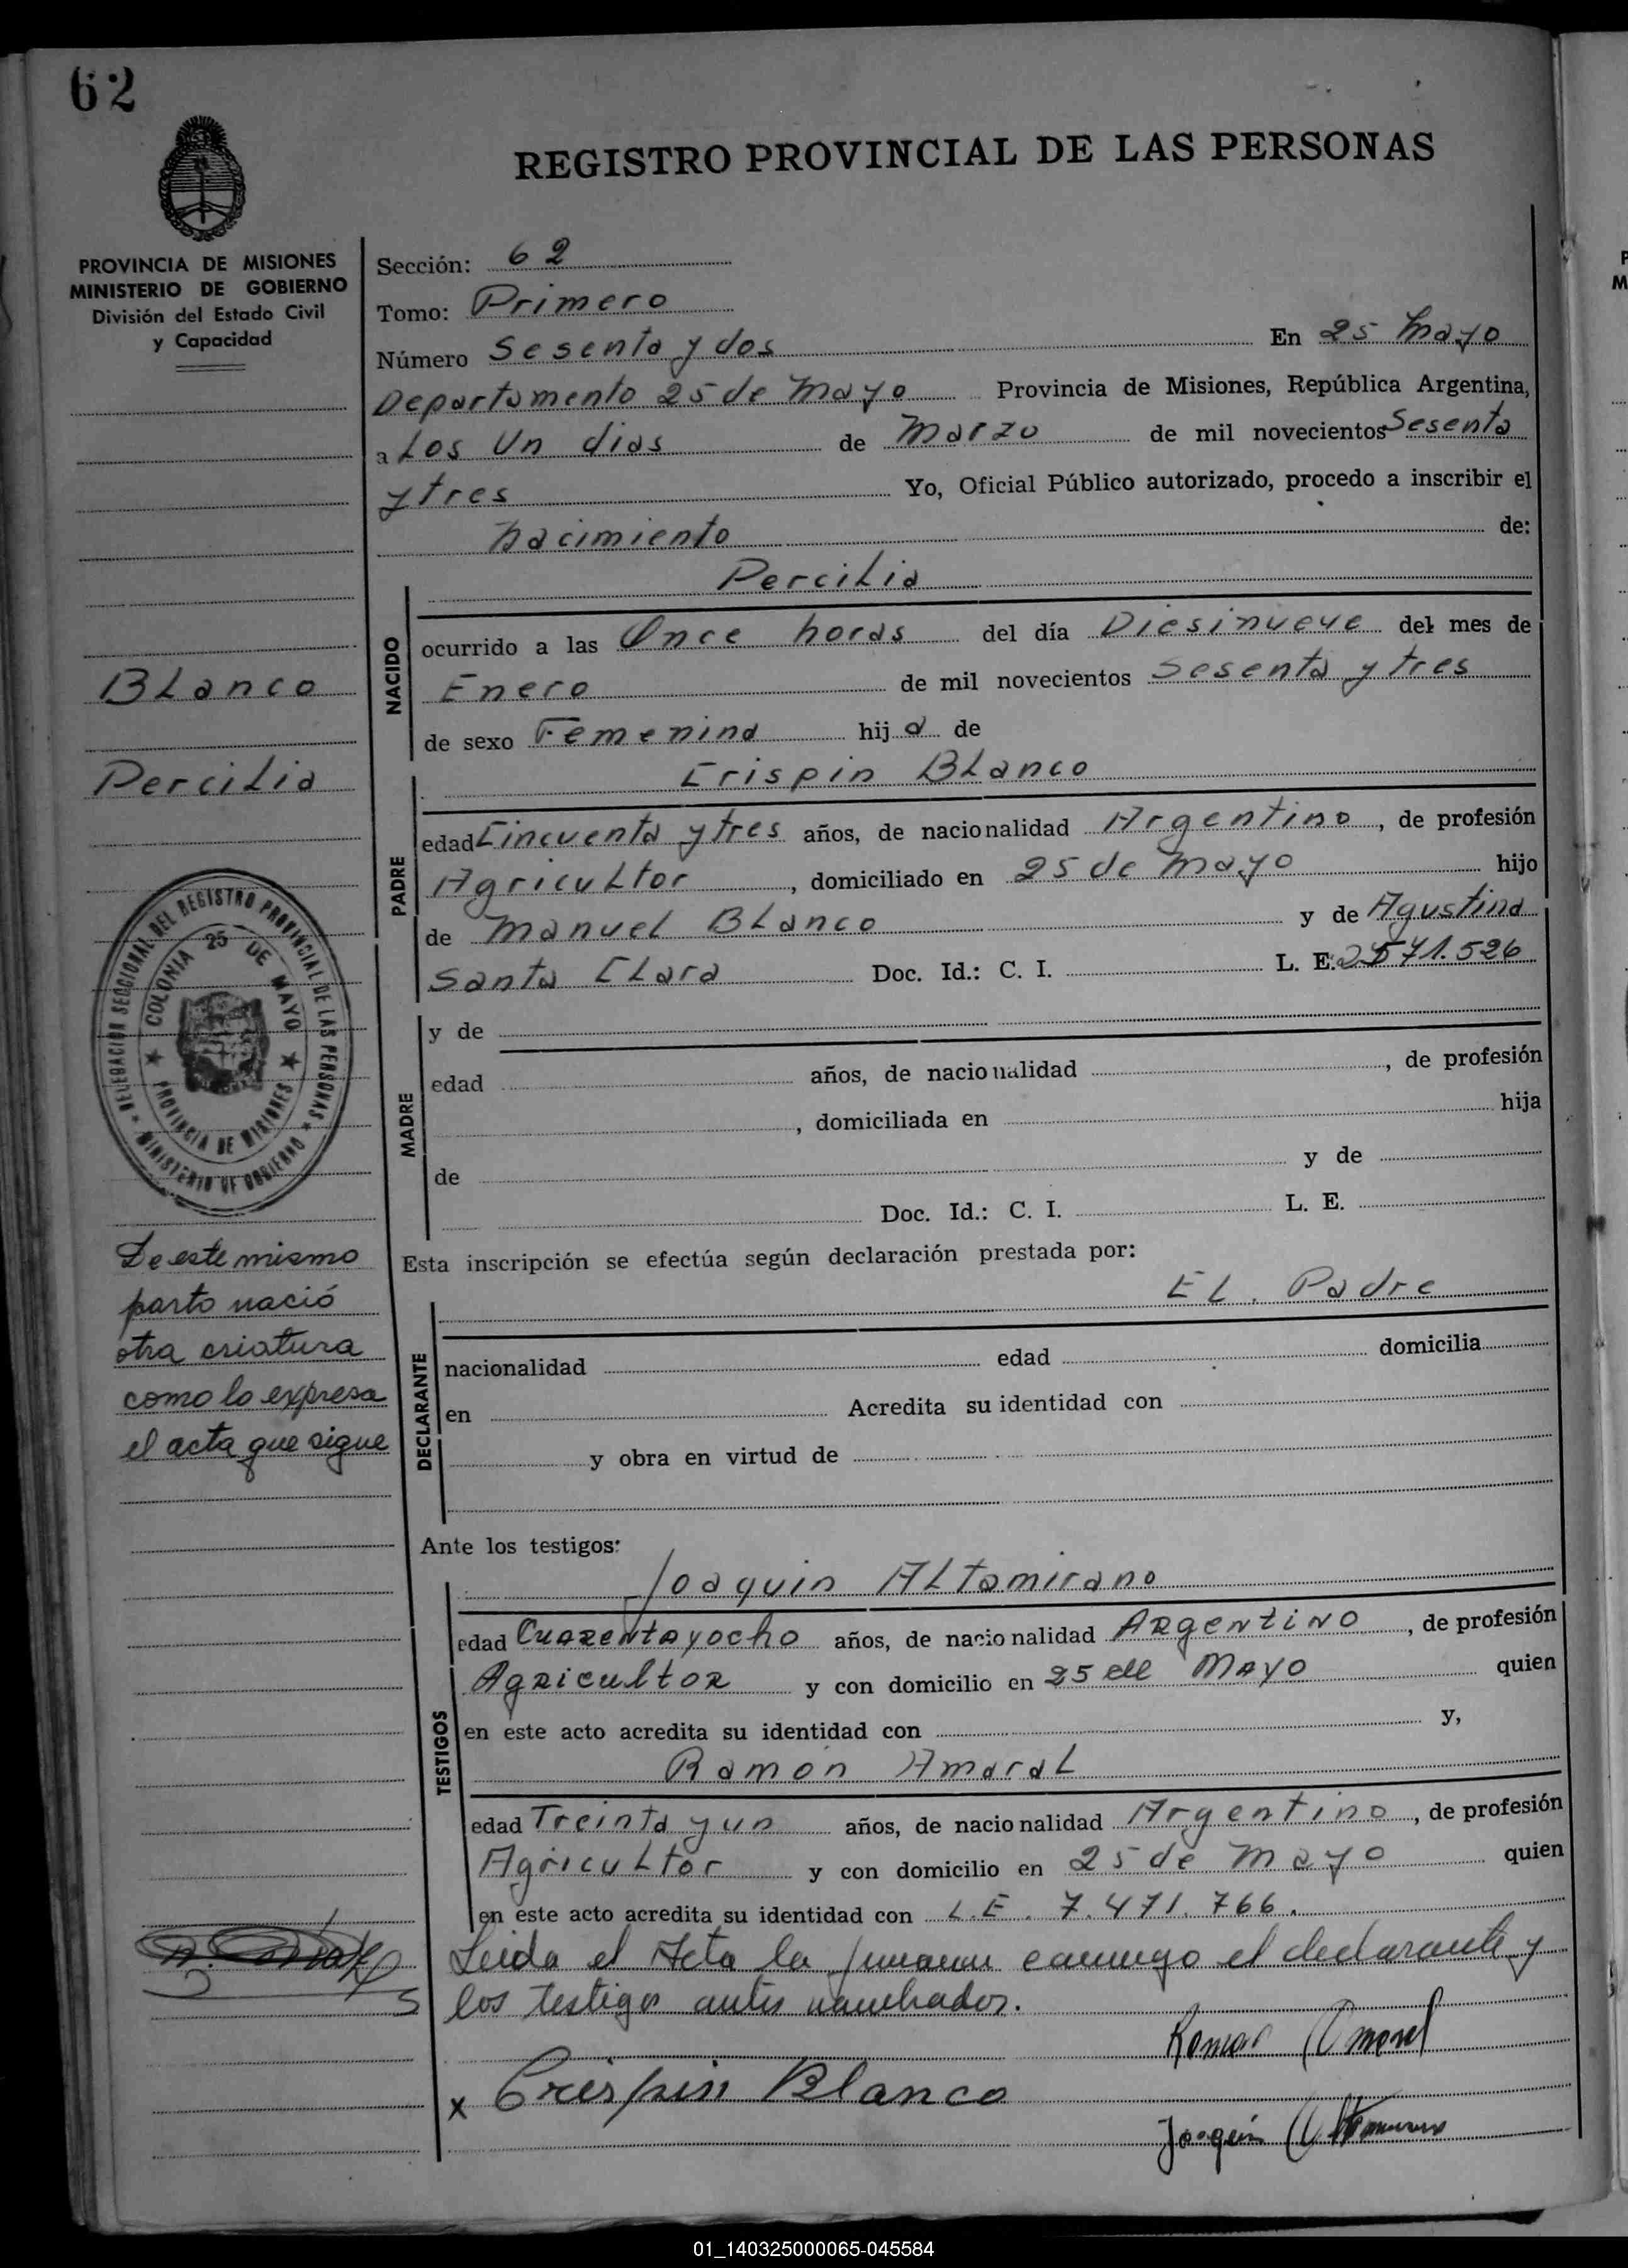 62
REGISTRO PROVINCIAL DE LAS PERSONAS
PROVINCIA DE MISIONES
MINISTERIO DE GOBIERNO
División del Estado Civil
y Capacidad
Sección: 62
Tomo: Primero
Número Sesenta y dos En 25 Mayo
Departamento 25 de Mayo Provincia de Misiones, República Argentina,
a Los Un dias de Marzo de mil novecientos Sesenta
y tres Yo, Oficial Público autorizado, procedo a inscribir el
Nacimiento de:
Percilia
NACIDO
ocurrido a las Once horas del día Diesinueve del mes de
Enero de mil novecientos Sesenta y tres
de sexo Femenina hij a de
Blanco
Percilia
Crispin Blanco
PADRE
edad Cincuenta y tres años, de nacionalidad Argentino, de profesión
Agricultor, domiciliado en 25 de Mayo hijo
de Manuel Blanco y de Agustina
Santa Clara Doc. Id.: C. I. L. E.
DELEGACION SECCIONAL DEL REGISTRO PROVINCIAL DE LAS PERSONAS
MINISTERIO DE GOBIERNO
COLONIA 25 DE MAYO
PROVINCIA DE MISIONES
MADRE
y de
edad años, de nacionalidad , de profesión
, domiciliada en hija
de y de
Doc. Id.: C. I. L. E.
De este mismo
parto nació
otra criatura
como lo expresa
el acta que sigue
Esta inscripción se efectúa según declaración prestada por:
El. Padre
DECLARANTE
nacionalidad edad domicilia
en Acredita su identidad con
y obra en virtud de
Ante los testigos:
Joaquin Altamirano
TESTIGOS
edad Cuarentayocho años, de nacionalidad Argentino, de profesión
Agricultor y con domicilio en 25 de Mayo quien
en este acto acredita su identidad con y,
Ramón Amaral
edad Treinta y un años, de nacionalidad Argentino, de profesión
Agricultor y con domicilio en 25 de Mayo quien
en este acto acredita su identidad con L.E. 7.471.766.
Leida el Acta la firman conmigo el declarante y
los testigos antes nombrados.
x Crispin Blanco
Joaquin
01_140325000065-045584